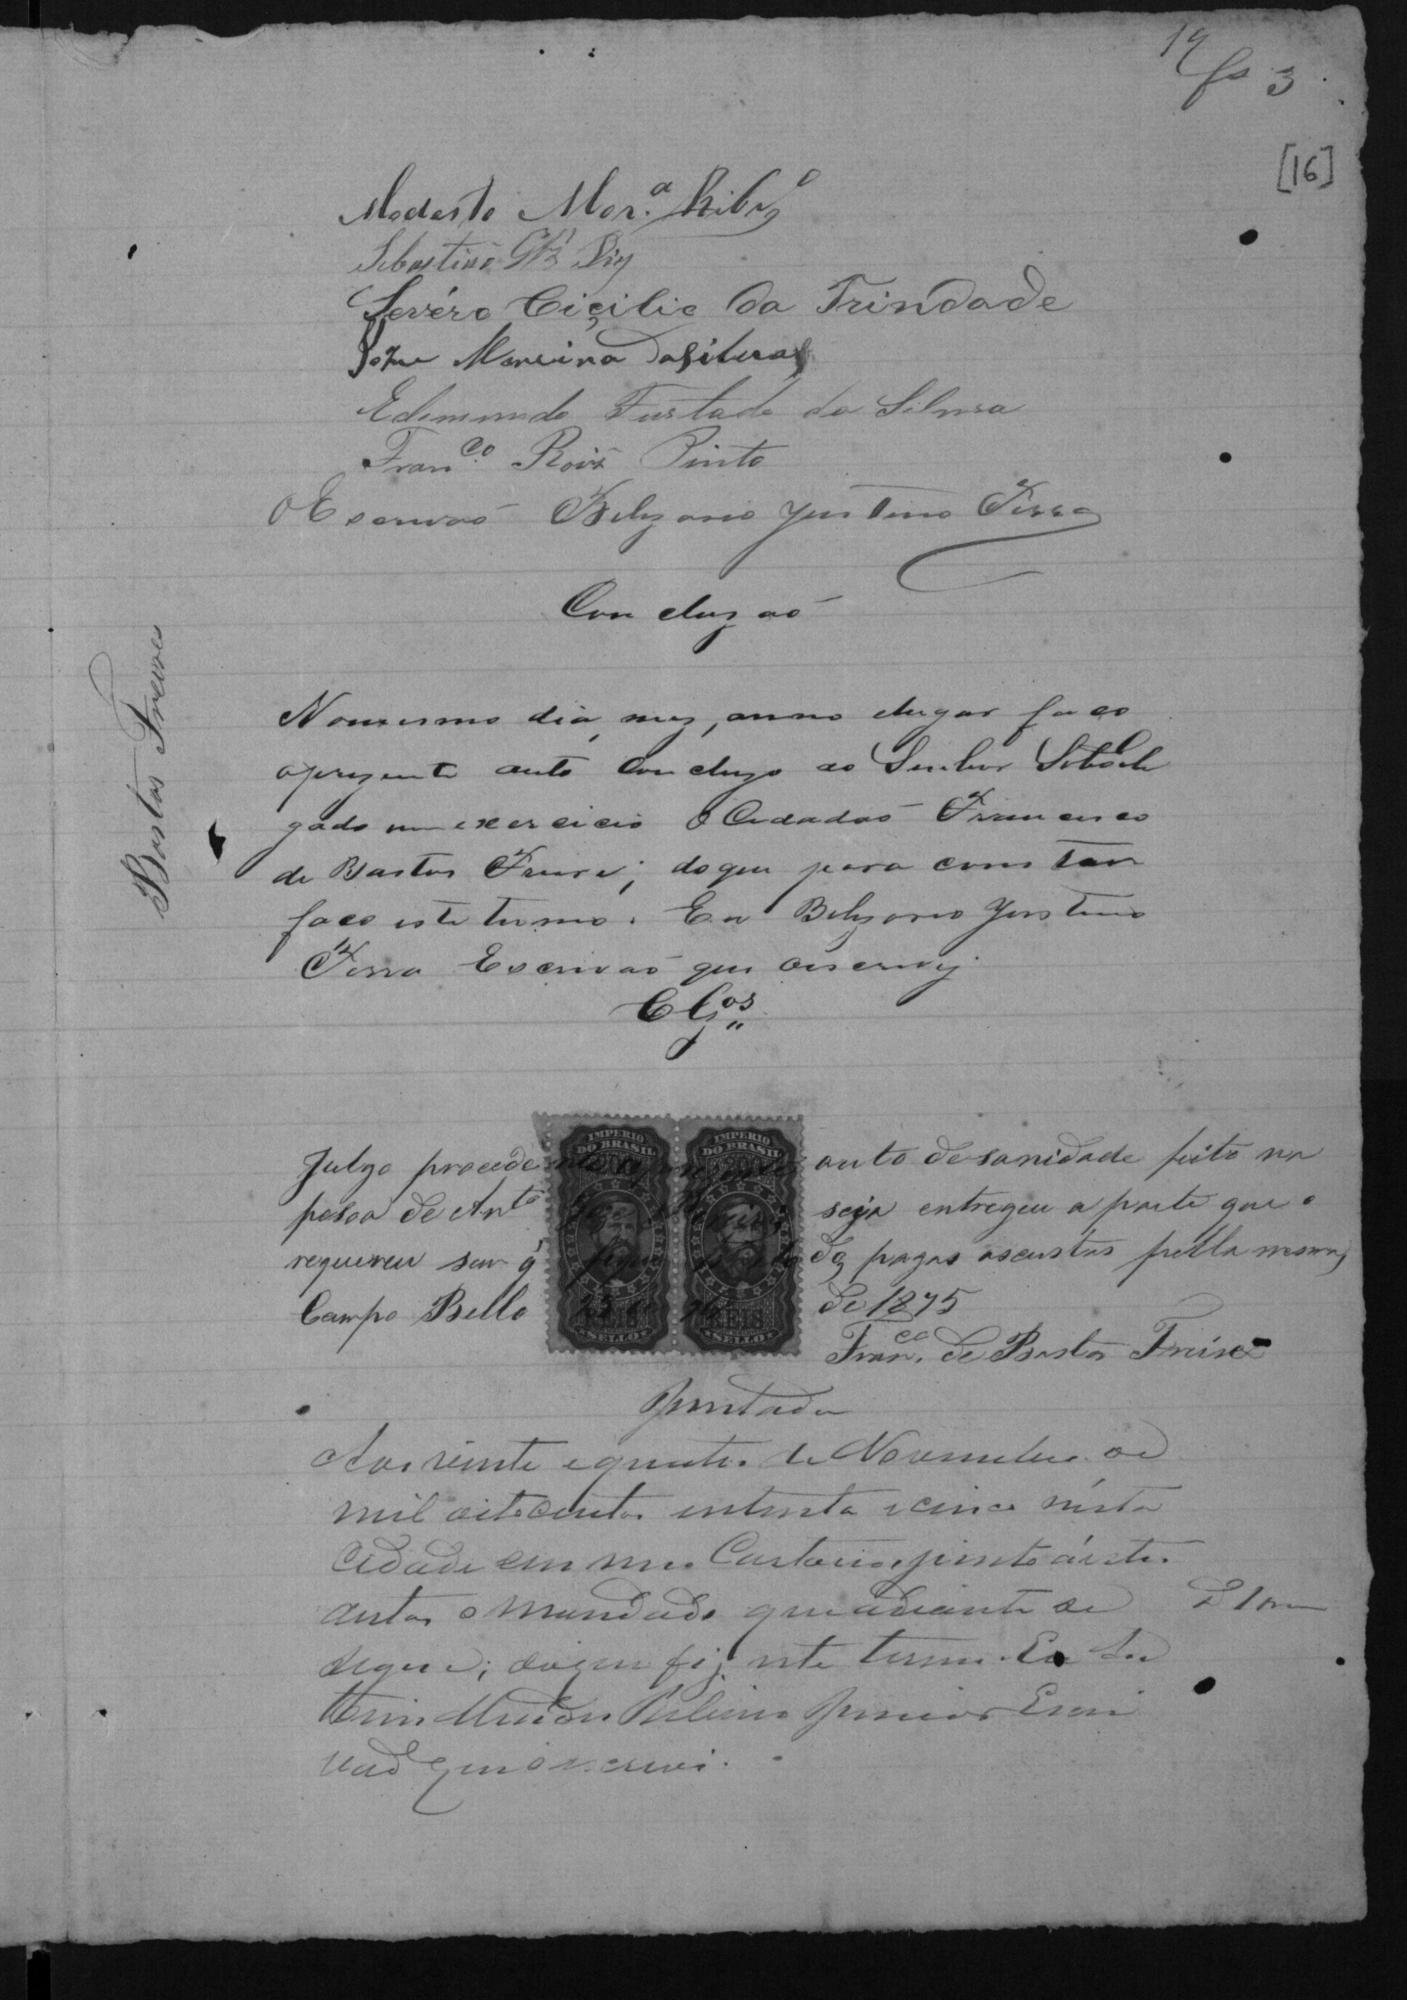 19
fs 3
[16]
Modesto Mor.ª Ribrº
Sebastião Glz
Sevéro Ciçilio da Trindade
Joze Moreira daSilva
Edimundo Furtado da Silva
Fran.co Roiz Pinto
O Escrivaõ Belizario Justino Ferra
Concluzaõ
Bastos Freires
Nomesmo dia, mez, anno elugar faço
oprezente auto Concluzo ao Senhor Subdele
gado em exercicio O Cidadaõ Francisco
de Bastos Freire; doque para constar
faço este termo. Eu Belizario Justino
Ferra Escrivaõ que oescrevj
Clzos
IMPERIO DO BRASIL
IMPERIO DO BRASIL
REIS
SELLO
SELLO
Julgo procedente oprezente auto desanidade feito na
pesoa de Antº Joze seja entregeu a parte que o
requereu sem q̃ pagas ascustas pella mesma
Campo Bello 23 de de 1875
Fran.co de Bastos Freire
Juntada
Aos vinte equatro de Novembro de
mil oitocentos setenta ecinco nésta
Cidade em meu Cartorio, junto áestes
autos o Mandado queadiante se
segue; doque fiz este termo. Eu
Ribeiro Junior Escri
vaõ que o escrevi.